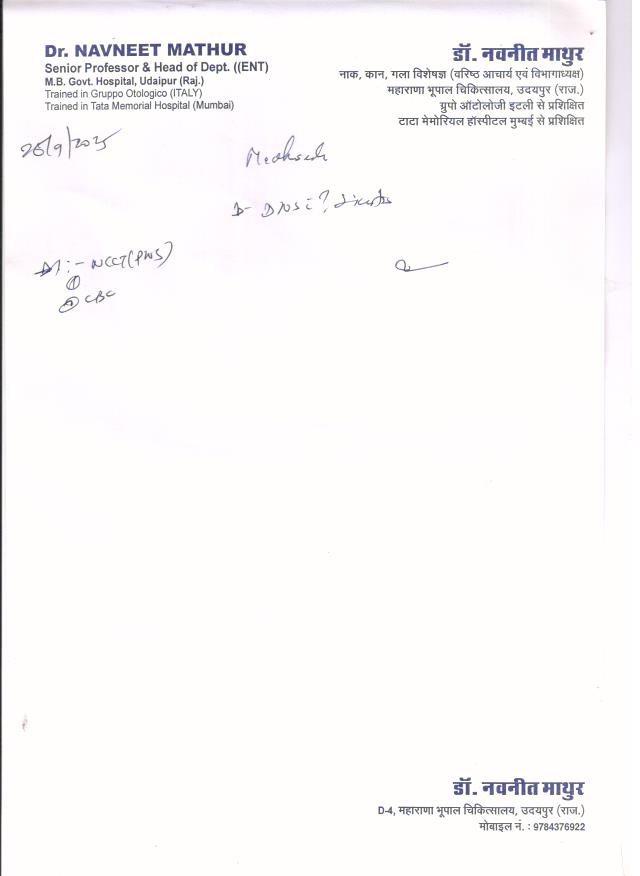 Dr. NAVNEET MATHUR
Senior Professor & Head of Dept. ((ENT)
M.B. Govt. Hospital, Udaipur (Raj.)
Trained in Gruppo Otologico (ITALY)
Trained in Tata Memorial Hospital (Mumbai)
डॉ. नवनीत माथुर
नाक, कान, गला विशेषज्ञ (वरिष्ठ आचार्य एवं विभागाध्यक्ष)
महाराणा भूपाल चिकित्सालय, उदयपुर (राज.)
ग्रुपो ऑटोलोजी इटली से प्रशिक्षित
टाटा मेमोरियल हॉस्पीटल मुम्बई से प्रशिक्षित
/9/2025
DNS ?
:- NCCT (PNS)
①
② CBC
डॉ. नवनीत माथुर
D-4, महाराणा भूपाल चिकित्सालय, उदयपुर (राज.)
मोबाइल नं. : 9784376922